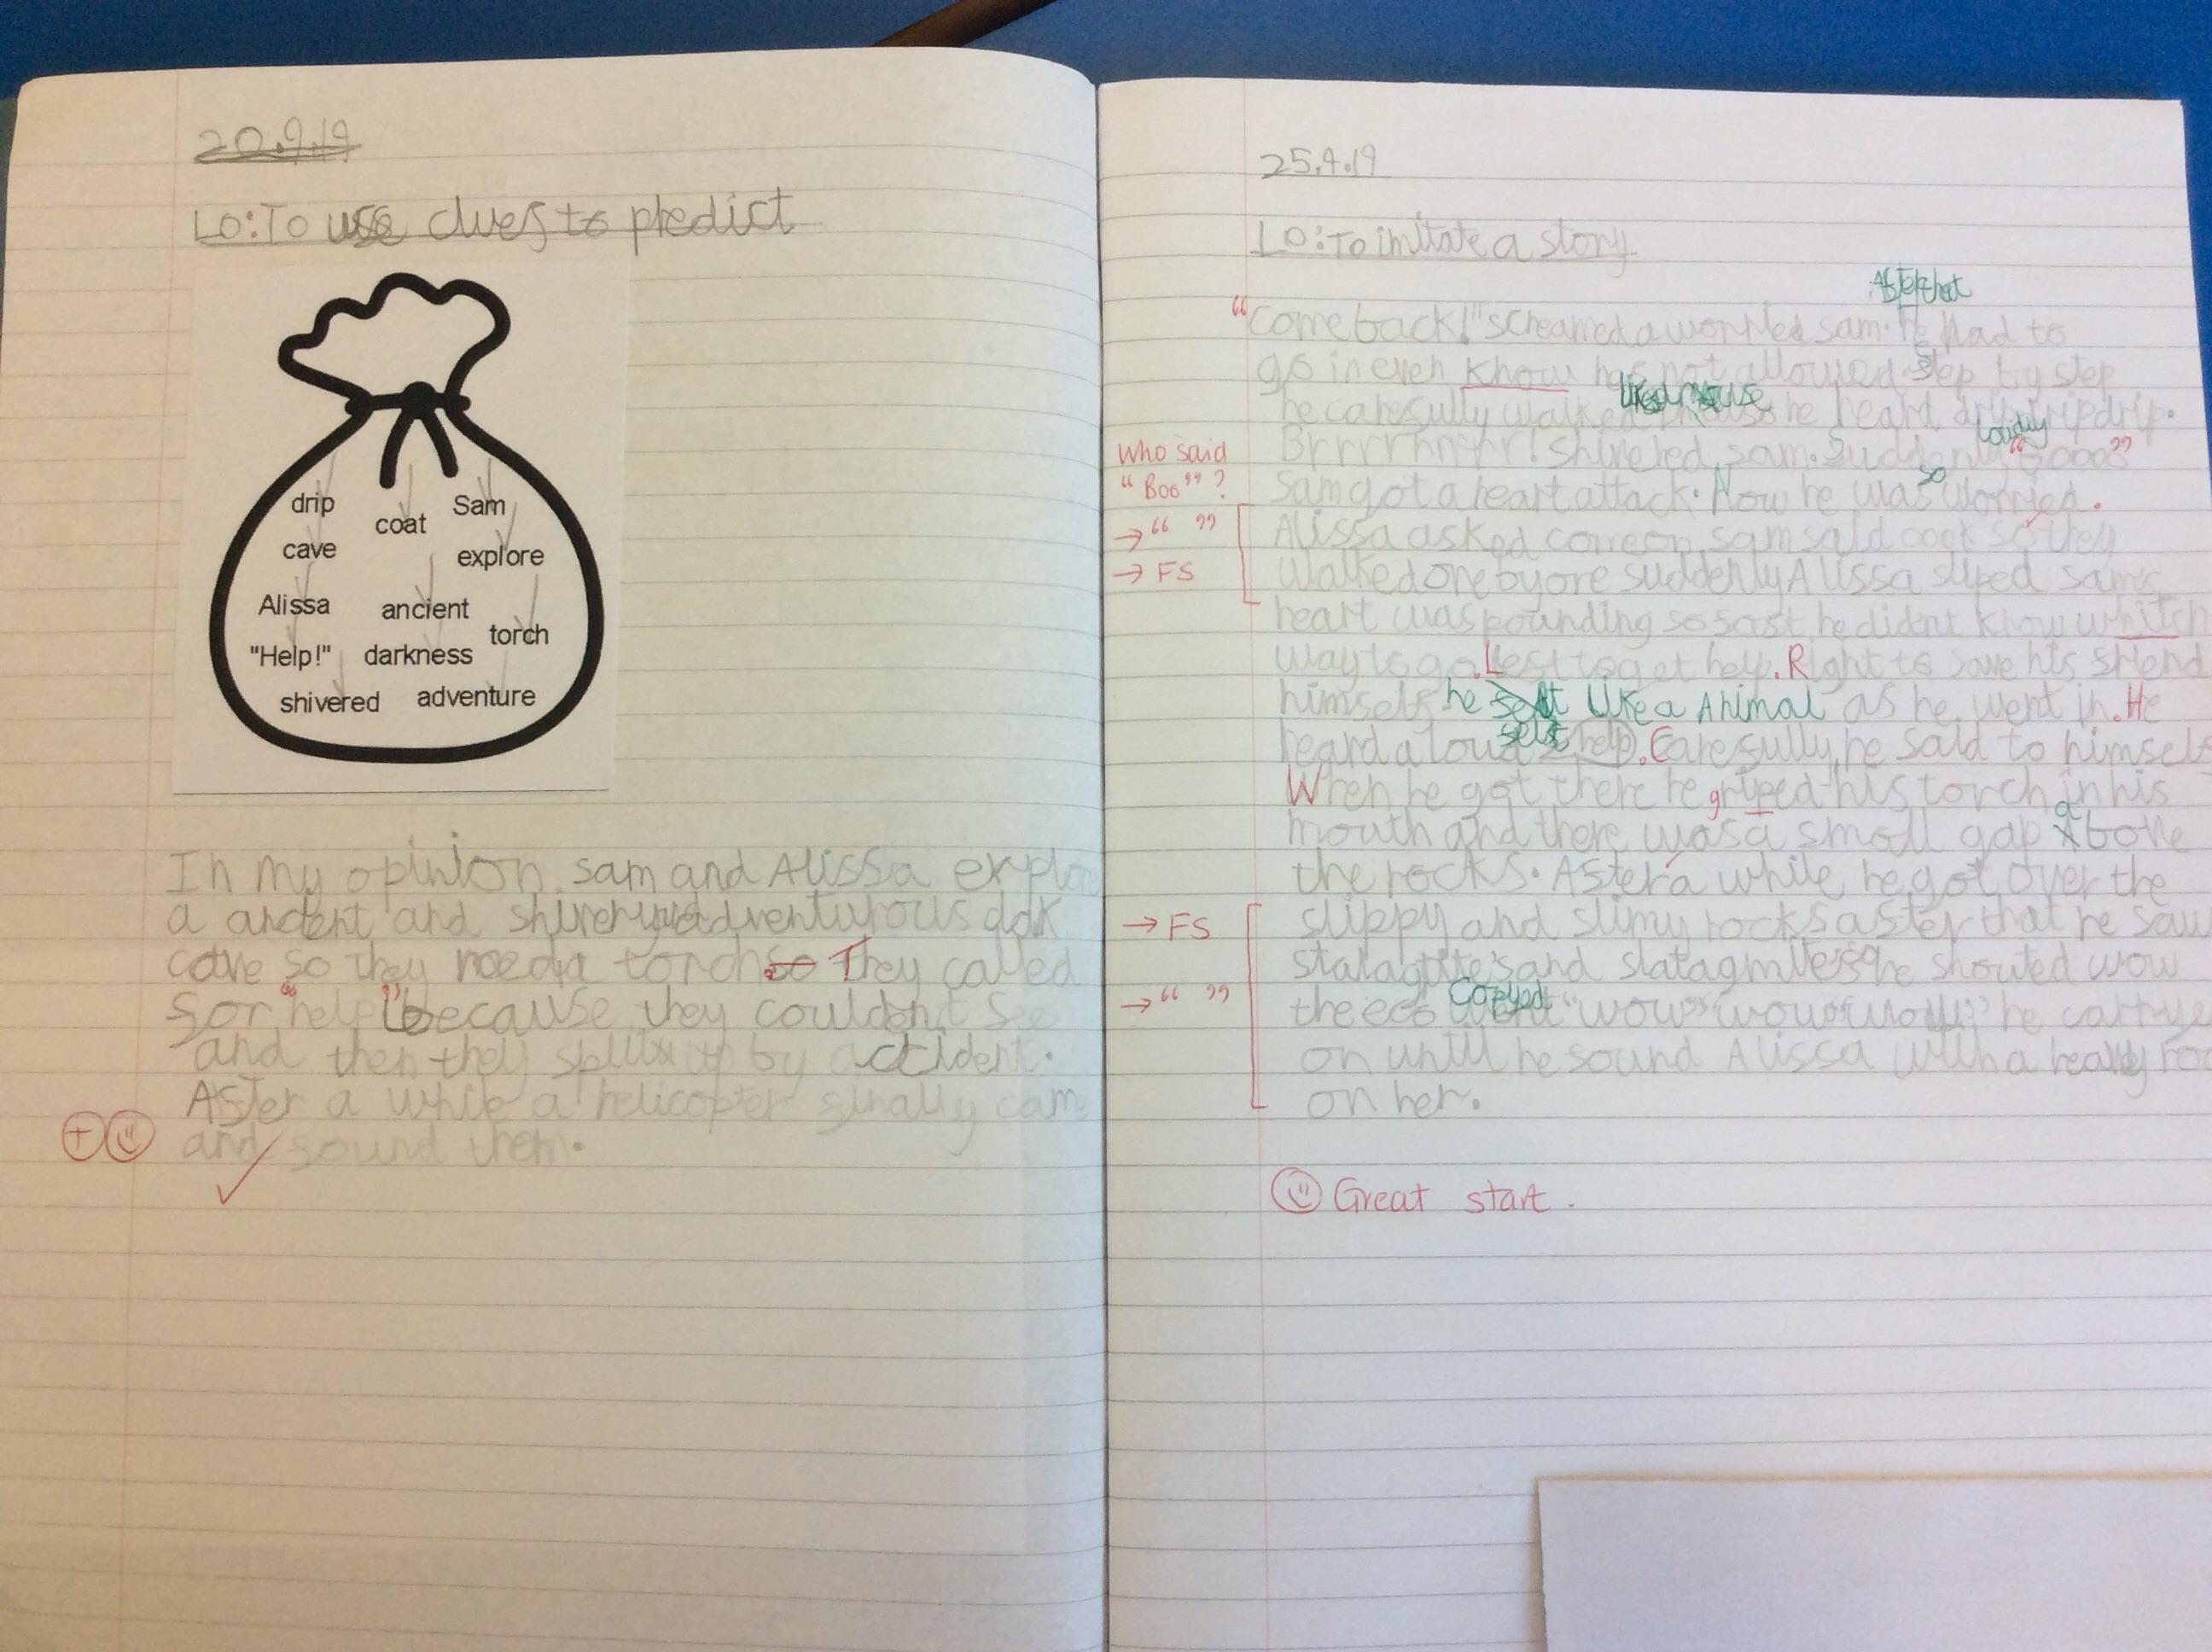 20.9.19
LO: To use clues to predict
drip
coat
Sam
cave
explore
Alissa
ancient
torch
"Help!"
darkness
shivered
adventure
In my opinion sam and Alissa explo
a ancient and shivery adventurous dark
cave so they need a torch. so They called
for "help!" because they couldn't see
and then they split up by accident.
After a while a helicopter finally cam
and found them.
25.9.19
LO: To imitate a story
After that
"Come back!" screamed a worried sam. he had to
go in even know he's not allowed step by step
like a mouse
he carefully walked he heard drip drip drip.
loudly
Who said
"Boo"?
Brrrrrrrrrr! shivered sam. Suddenly "Booo"
so
Sam got a heart attack. Now he was worried.
→ " "
Alissa asked come on sam said so they
→ FS
walked one by one suddenly Alissa sliped sam's
heart was pounding so fast he dident know whitch
way to go. Left to get help. Right to save his friend
himself he felt like a Animal as he went in. He
heard a loud help. Carefully, he said to himself
When he got there he griped his torch in his
mouth and there was a small gap above
the rocks. After a while he got over the
→ FS
slippy and slimy rocks after that he saw
stalagtite's and slatagmite's he shouted wow
→ " "
Copyed
the eco "wow" wow wow he carrye
on until he found Alissa with a really roc
on her.
Great start.